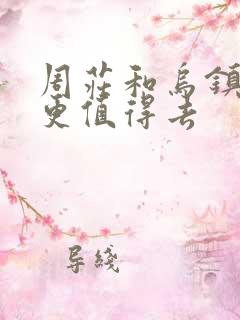 周荘和烏鎮
更值得去
导綫